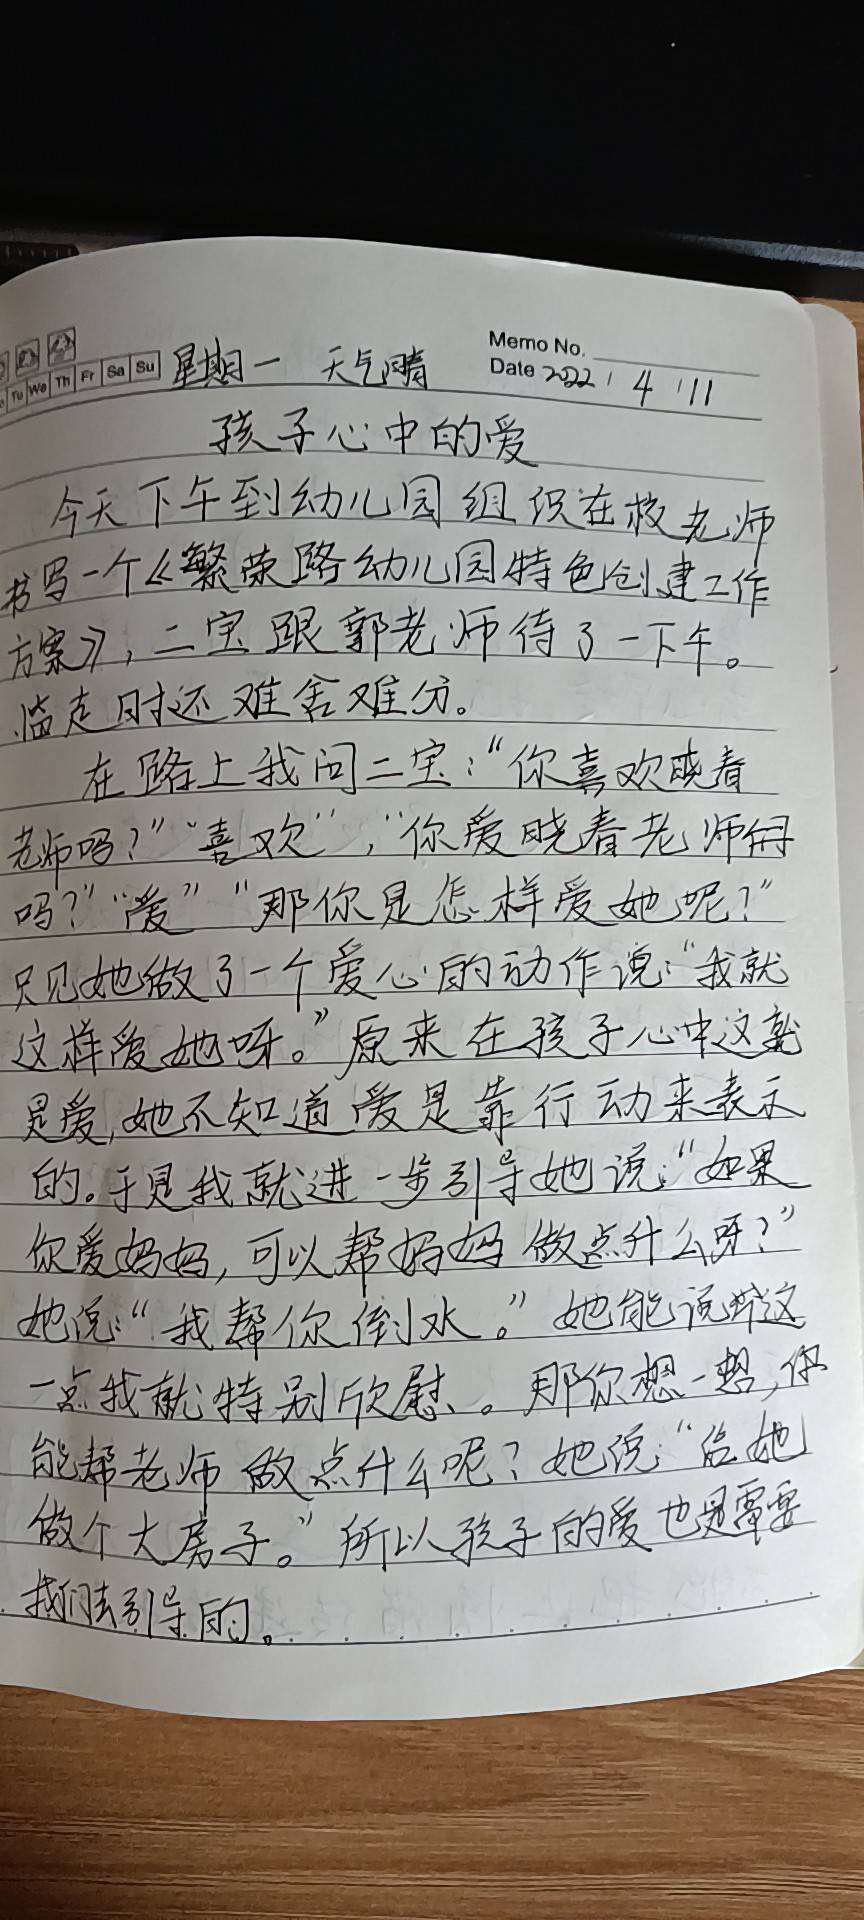 Memo No.
Tu We Th Fr Sa Su 星期一 天气晴 Date 2022 / 4 / 11
孩子心中的爱
今天下午到幼儿园组织在校老师
书写一个《繁荣路幼儿园特色创建工作
方案》,二宝跟郭老师待了一下午。
临走时还难舍难分。
在路上我问二宝:“你喜欢晓春
老师吗?”“喜欢”,“你爱晓春老师
吗?”“爱”“那你是怎样爱她呢?”
只见她做了一个爱心的动作说:“我就
这样爱她呀。”原来在孩子心中这就
是爱,她不知道爱是靠行动来表示
的。于是我就进一步引导她说:“如果
你爱妈妈,可以帮妈妈做点什么呀?”
她说:“我帮你倒水。”她能说出这
一点我就特别欣慰。那你想一想,你
能帮老师做点什么呢?她说:“给她
做个大房子。”所以孩子的爱也是需要
我们去引导的。